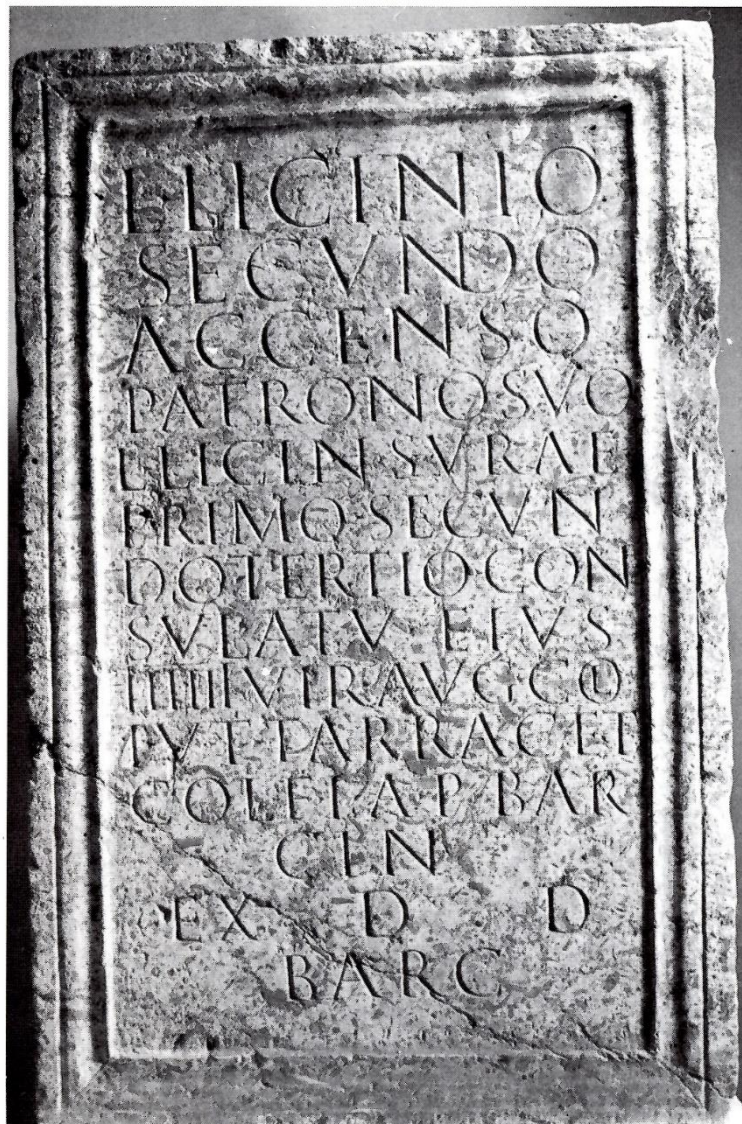 L LICINIO
SECVNDO
ACCENSO
PATRONO SVO
L LICIN SVRAE
PRIMO SECVN
DO TERTIO CON
SVLATV EIVS
IIIIIIVIR AVG COL
IVL T TARRAC ET
COL F I A P BAR
CIN
EX D D
BARC